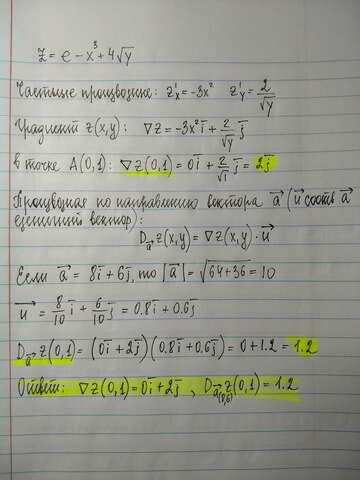 z = e - x³ + 4√y
Частные производные: z'ₓ = -3x² z'ᵧ = 2/√y
Градиент z(x,y): ∇z = -3x² i̅ + 2/√y j̅
в точке A(0,1): ∇z(0,1) = 0i̅ + 2/√1 j̅ = 2j̅
Производная по направлению вектора a⃗ (u⃗ соотв a⃗
единичный вектор):
D_a⃗ z(x,y) = ∇z(x,y) · u⃗
Если a⃗ = 8i̅ + 6j̅, то |a⃗| = √64+36 = 10
u⃗ = 8/10 i̅ + 6/10 j̅ = 0.8i̅ + 0.6j̅
D_a⃗ z(0,1) = (0i̅ + 2j̅)(0.8i̅ + 0.6j̅) = 0 + 1.2 = 1.2
Ответ: ∇z(0,1) = 0i̅ + 2j̅, D_a⃗ z(0,1) = 1.2